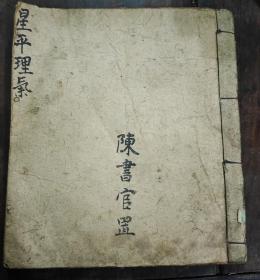 星平理氣
陳書官置